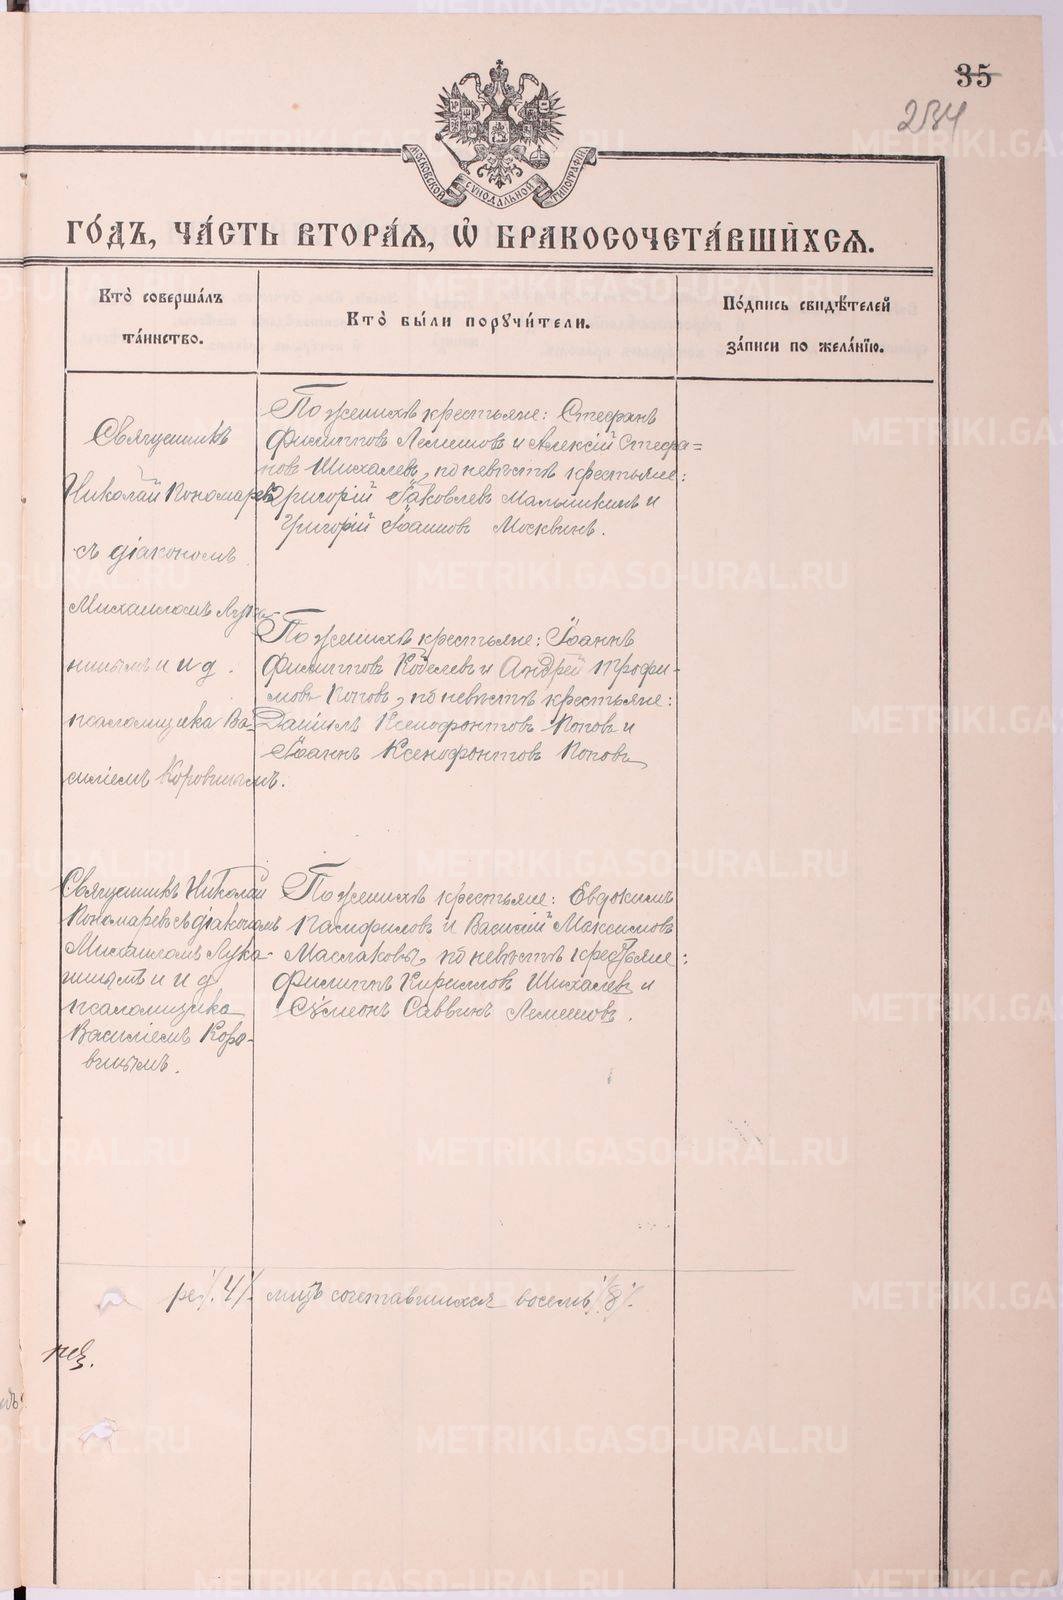 35
234
МОСКОВСКОЙ СѴНОДАЛЬНОЙ ТИПОГРАФІИ
ГО́ДЪ, ЧА́СТЬ ВТОРА́Я, Ѡ҆ БРАКОСОЧЕТА́ВШИХСЯ.
Кто̀ соверша́лъ
та́инство.
Кто̀ бы́ли порꙋчи́тели.
По́дпись свидѣ́телей
за́писи по жела́нїю.
Священникъ
Николай Пономаревъ
съ діакономъ
Михаиломъ Лука-
нинымъ и и. д.
псаломщика Ва-
силіемъ Коровинымъ.
По женихѣ крестьяне: Стефанъ
Филипповъ Лемешовъ и Алексій Стефа-
новъ Шихалевъ, по невѣстѣ крестьяне:
Григорій Іаковлевъ Малышкинъ и
Григорій Іоанновъ Москвинъ.
По женихѣ крестьяне: Іоаннъ
Филипповъ Кобелевъ и Андрей Трофи-
мовъ Поповъ, по невѣстѣ крестьяне:
Даніилъ Ксенофонтовъ Поповъ и
Іоаннъ Ксенофонтовъ Поповъ
Священникъ Николай
Пономаревъ съ діакономъ
Михаиломъ Лука-
нинымъ и и д
псаломщика
Василіемъ Коро-
винымъ.
По женихѣ крестьяне: Евдокимъ
Памфиловъ и Василій Максимовъ
Маслаковы, по невѣстѣ крестьяне:
Филиппъ Кирилловъ Шихалевъ и
Сѵмеонъ Саввинъ Лемешовъ.
ре /4/ лицъ сочетавшихся восемь /8/.
METRIKI.GASO-URAL.RU